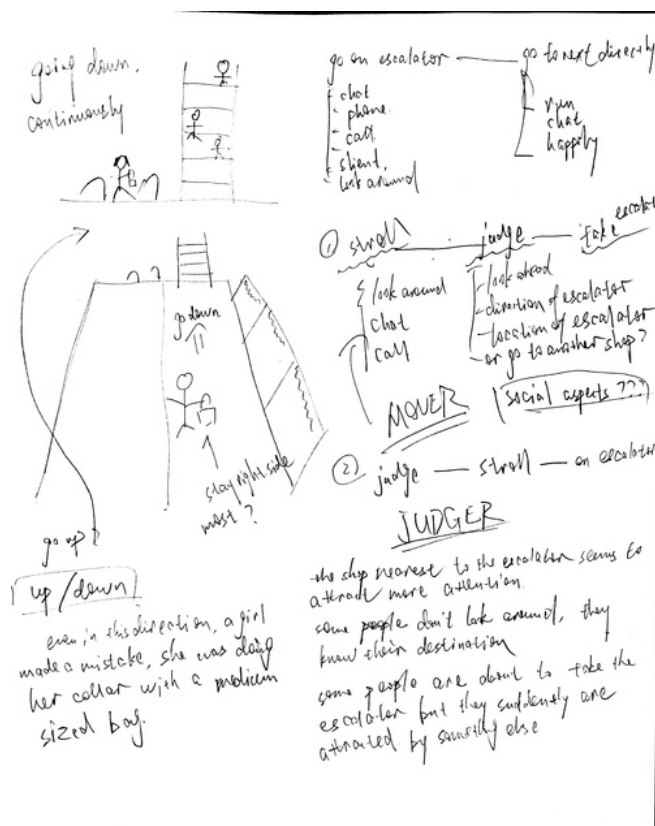 going down,
continuously
go down
stay right side
most?
go up
up/down
even in this direction, a girl
made a mistake, she was doing
her collar with a medium
sized bag.
go on escalator
go to next directly
chat
phone
call
slient,
look around
run
chat
happily
① stroll
judge
take escalator
look around
chat
call
look ahead
direction of escalator
location of escalator
or go to another shop?
MOVER
social aspects ???
② judge — stroll — on escalator
JUDGER
the shop nearest to the escalator seems to
attract more attention.
some people don't look around, they
know their destination
some people are about to take the
escalator but they suddenly are
by something else